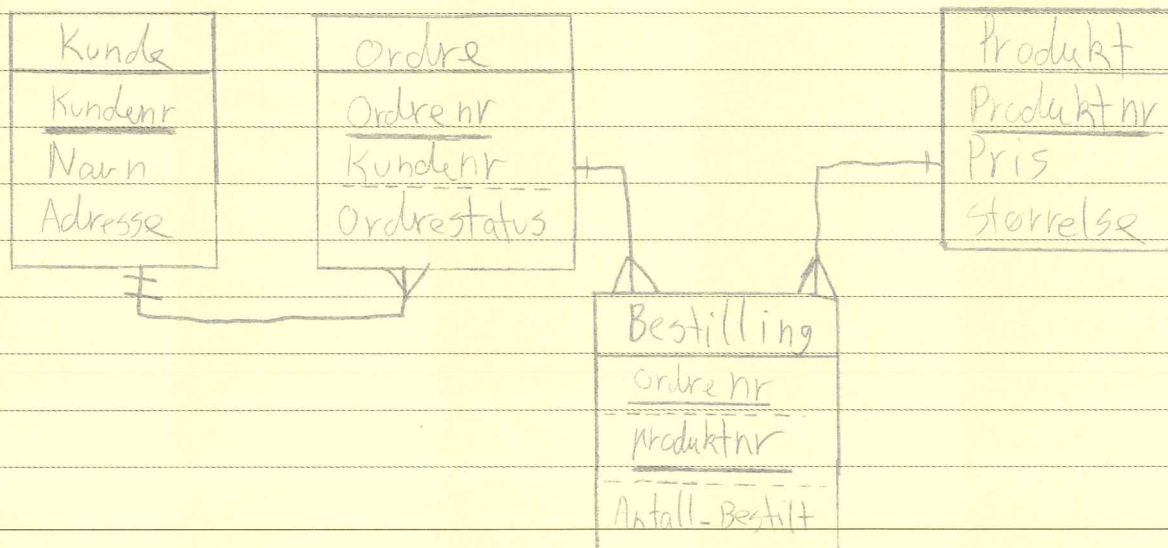 Kunde
Kundenr
Navn
Adresse
Ordre
Ordrenr
Kundenr
Ordrestatus
Produkt
Produktnr
Pris
størrelse
Bestilling
ordrenr
produktnr
Antall_Bestilt